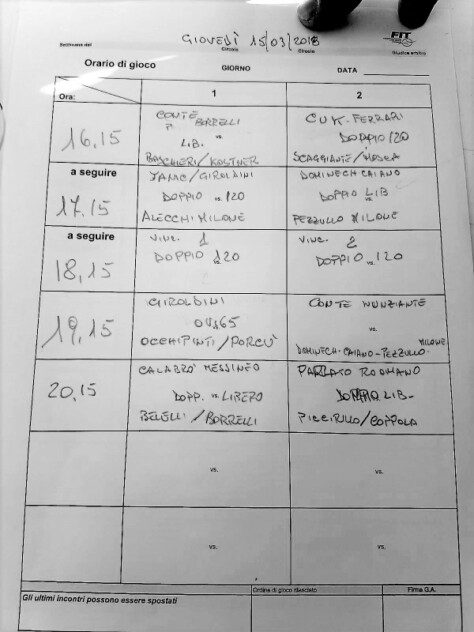 GIOVEDÌ 15/03/2018
FIT
Settimana del
Circolo
Giudice arbitro
Orario di gioco
GIORNO
DATA
Ora:
1
2
16,15
CONTE BORRELLI
LIB. vs.
BASCHIERI/KOSTNER
CUK-FERRARI
DOPPIO 120
SCAGGIANTE/MOSCA
a seguire
17,15
JANIC/GIROLDINI
DOPPIO vs. 120
ALECCHI MILONE
DOMINECH CAIANO
DOPPIO LIB
PEZZULLO MILONE
a seguire
18,15
VINC. 1
DOPPIO vs. 120
VINC. 2
DOPPIO vs. 120
19,15
GIROLDINI
OCCHIPINTI/PORCU'
CONTE NUNZIANTE
vs.
DOMINECH-CAIANO-PEZZULLO-MILONE
20,15
CALABRO' MESSINEO
DOPP. vs. LIBERO
BELELLI/BORRELLI
PARLATO ROOMANO
DOPPIO LIB-
PICCIRILLO/COPPOLA
vs.
vs.
vs.
vs.
Gli ultimi incontri possono essere spostati
Ordine di gioco rilasciato
Firma G.A.